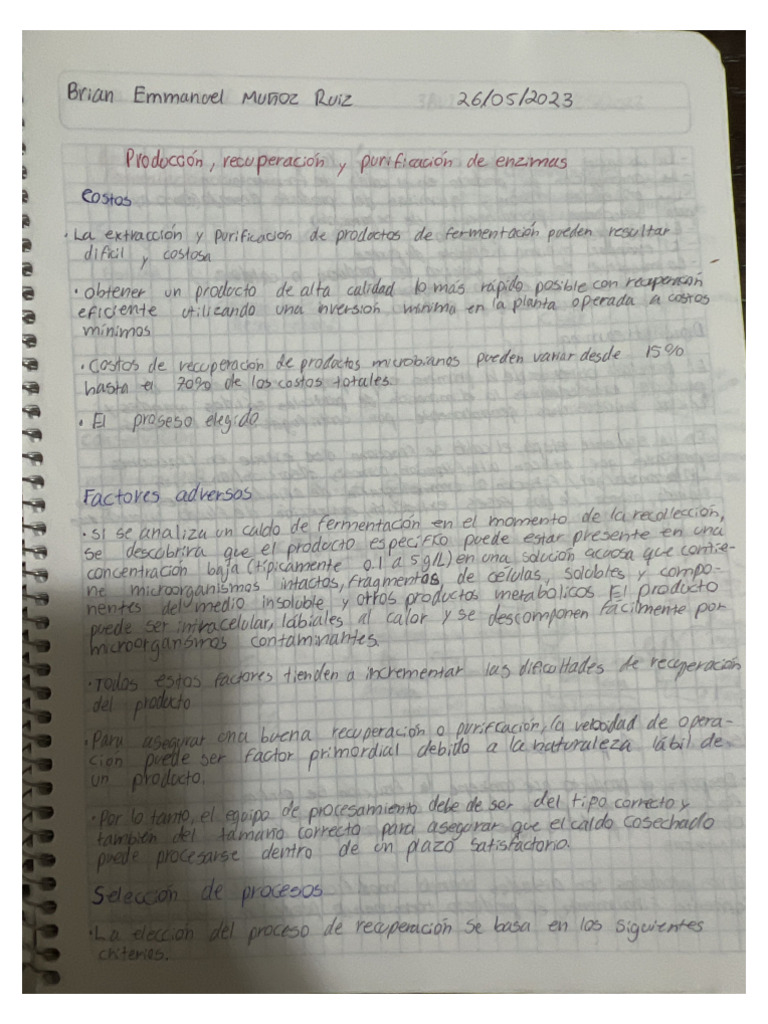 Brian Emmanuel MUÑOZ RUIZ 26/05/2023
Producción, recuperación y purificación de enzimas
Costos
• La extracción y purificación de productos de fermentación pueden resultar
dificil y costosa
• Obtener un producto de alta calidad lo más rápido posible con recuperación
eficiente utilizando una inversión minima en la planta operada a costos
mínimos
• Costos de recuperación de productos microbianos pueden variar desde 15%
hasta el 70% de los costos totales.
• El proseso elegido
Factores adversos
• Si se analiza un caldo de fermentación en el momento de la recolección,
se descubrira que el producto especifico puede estar presente en una
concentración baja (típicamente 0.1 a 5 g/L) en una solución acuosa que contie-
ne microorganismos intactos, fragmentos de células, solobles y compo-
nentes del medio insoluble, y otros productos metabolicos. El producto
puede ser intracelular, lábiales al calor y se descomponen fácilmente por
microorganismos contaminantes.
• Todos estos factores tienden a incrementar las dificultades de recuperación
del producto
• Para asegurar una buena recuperación o purificación, la velocidad de opera-
cion puede ser factor primordial debido a la naturaleza lábil de
un producto.
• Por lo tanto, el equipo de procesamiento debe de ser del tipo correcto y
también del tamaño correcto para asegurar que el caldo cosechado
puede procesarse dentro de un plazo satisfactorio.
Selección de procesos
• La elección del proceso de recuperación se basa en los siguientes
criterios.